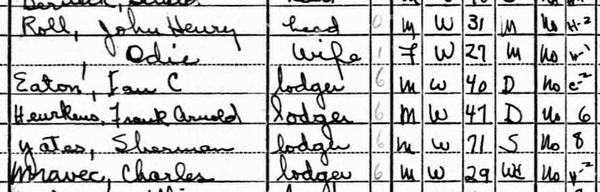 Roll, John Henry head 0 M W 31 M No H-2
Odie Wife 1 F W 27 M No H-1
Eaton, C lodger 6 M W 40 D No C-2
Frank Arnold lodger 6 M W 47 D No 6
Yates, Sherman lodger 6 M W 71 S No 8
Mravec, Charles lodger 6 M W 29 No H-2